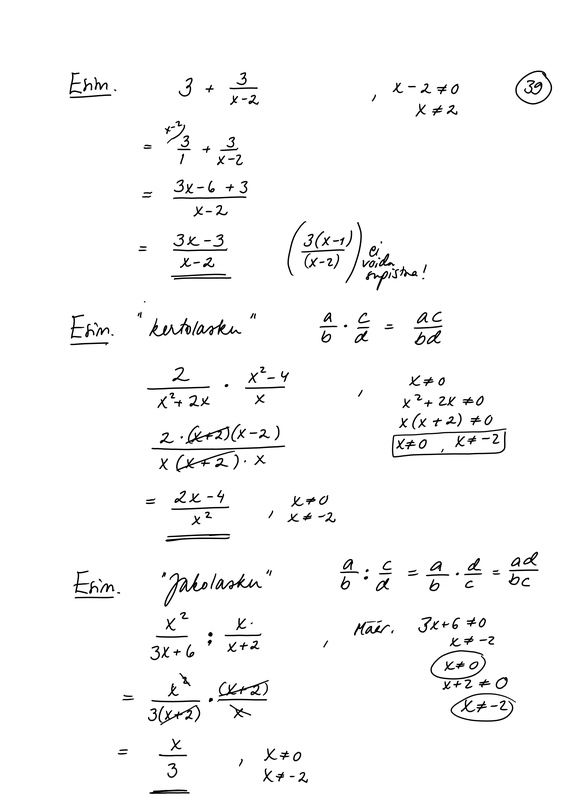 Esim. 3 + 3/(x-2) , x-2 ≠ 0 39
x ≠ 2
= x-2) 3/1 + 3/(x-2)
= (3x-6+3)/(x-2)
= (3x-3)/(x-2) (3(x-1)/(x-2)) ei voida supistaa!
Esim. "kertolasku" a/b · c/d = ac/bd
2/(x²+2x) · (x²-4)/x , x ≠ 0
x²+2x ≠ 0
x(x+2) ≠ 0
x ≠ 0 , x ≠ -2
2·(x+2)(x-2)/(x(x+2)·x)
= (2x-4)/x² , x ≠ 0
x ≠ -2
Esim. "Jakolasku" a/b : c/d = a/b · d/c = ad/bc
x²/(3x+6) : x/(x+2) , Määr. 3x+6 ≠ 0
x ≠ -2
x ≠ 0
x+2 ≠ 0
x ≠ -2
= x²/(3(x+2)) · (x+2)/x
= x/3 , x ≠ 0
x ≠ -2